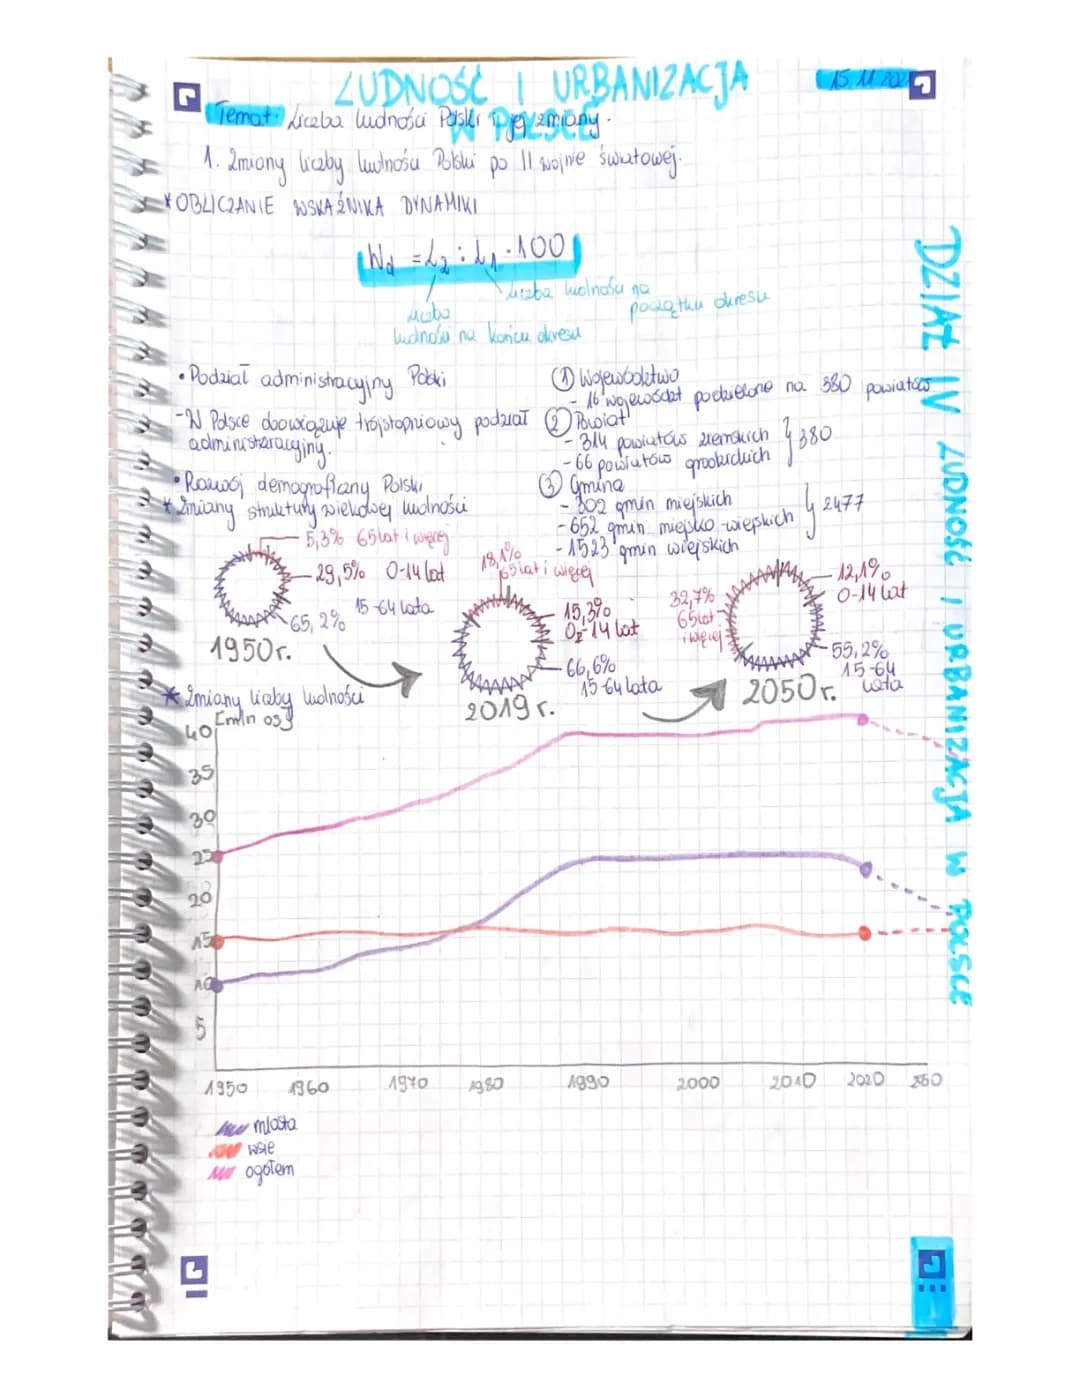 LUDNOŚĆ I URBANIZACJA
W POLSCE
15.11.202
Temat: Liczba ludności Polski i jej zmiany.
1. Zmiany liczby ludności Polski po II wojnie światowej.
* OBLICZANIE WSKAŹNIKA DYNAMIKI
Wd = L2 : L1 · 100
liczba ludności na
początku okresu
liczba
ludności na końcu okresu
• Podział administracyjny Polski
- W Polsce obowiązuje trójstopniowy podział
administracyjny.
• Rozwój demograficzny Polski
* Zmiany struktury wiekowej ludności
① Województwo
- 16 województ podzielone na 380 powiatów
② Powiat
- 314 powiatów ziemskich } 380
- 66 powiatów grodzkich
③ Gmina
- 302 gmin miejskich
- 652 gmin miejsko wiejskich } 2477
- 1523 gmin wiejskich
5,3% 65 lat i więcej
29,5% 0-14 lat
15-64 lata
65,2%
1950 r.
18,1%
65 lat i więcej
15,3%
0-14 lat
66,6%
15-64 lata
2019 r.
32,7%
65 lat
i więcej
12,1%
0-14 lat
55,2%
15-64
lata
2050 r.
* Zmiany liczby ludności
[mln os]
40
35
30
25
20
15
10
5
1950 1960 1970 1980 1990 2000 2010 2020
miasta
wsie
ogółem
DZIAŁ IV LUDNOŚĆ I URBANIZACJA W POLSCE